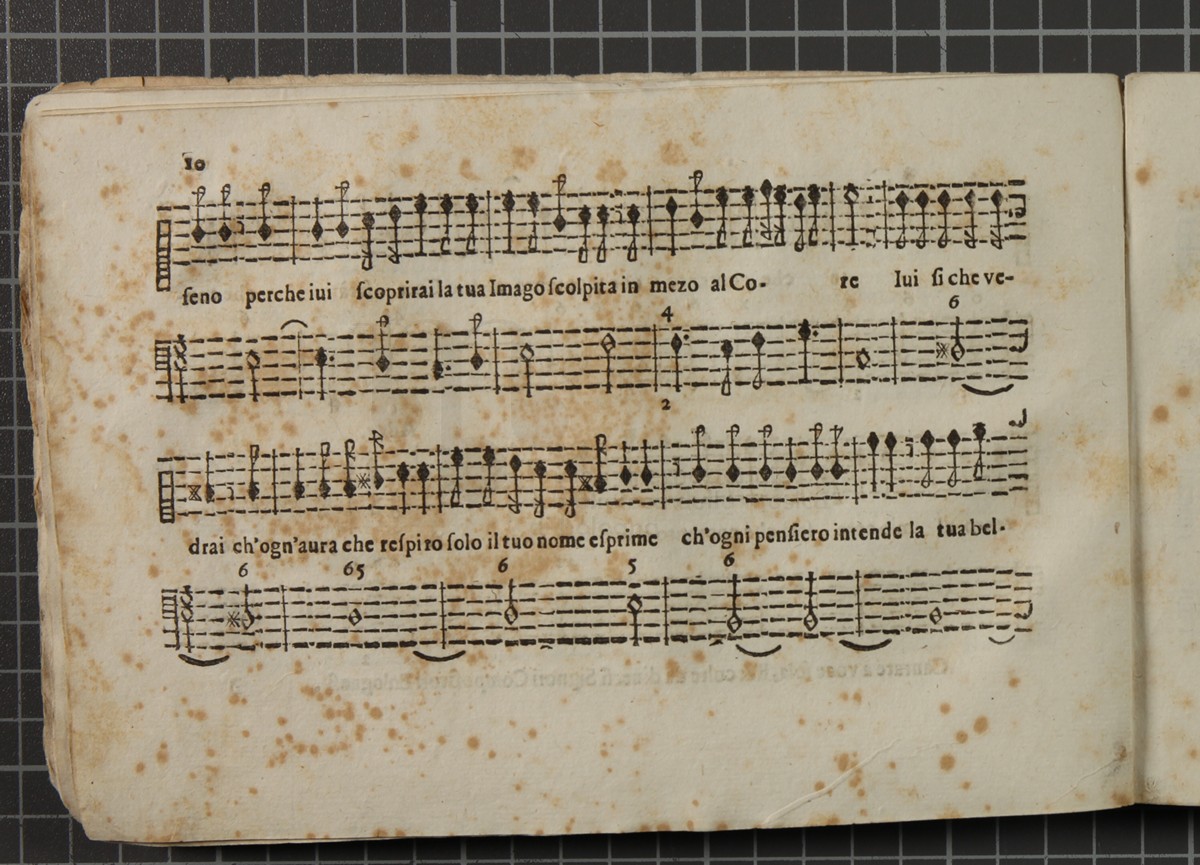 10
ſeno perche iui ſcoprirai la tua Imago ſcolpita in mezo al Co- re Iui ſi che ve-
4 6
2
drai ch'ogn'aura che reſpiro ſolo il tuo nome eſprime ch'ogni penſiero intende la tua bel-
6 65 6 5 6